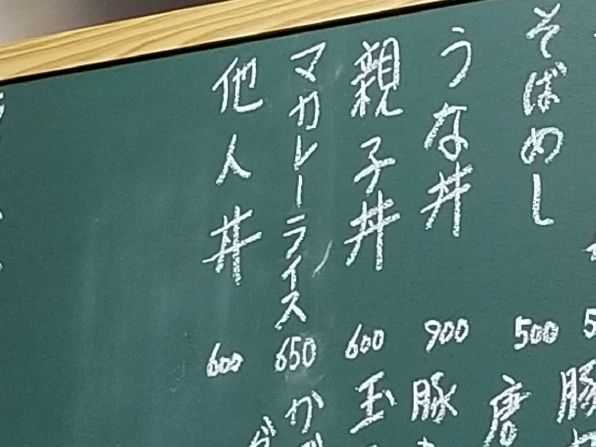 そばめし
500
うな丼
900
親子丼
600
マカレーライス
650
他人丼
600
豚
唐
豚
玉
か